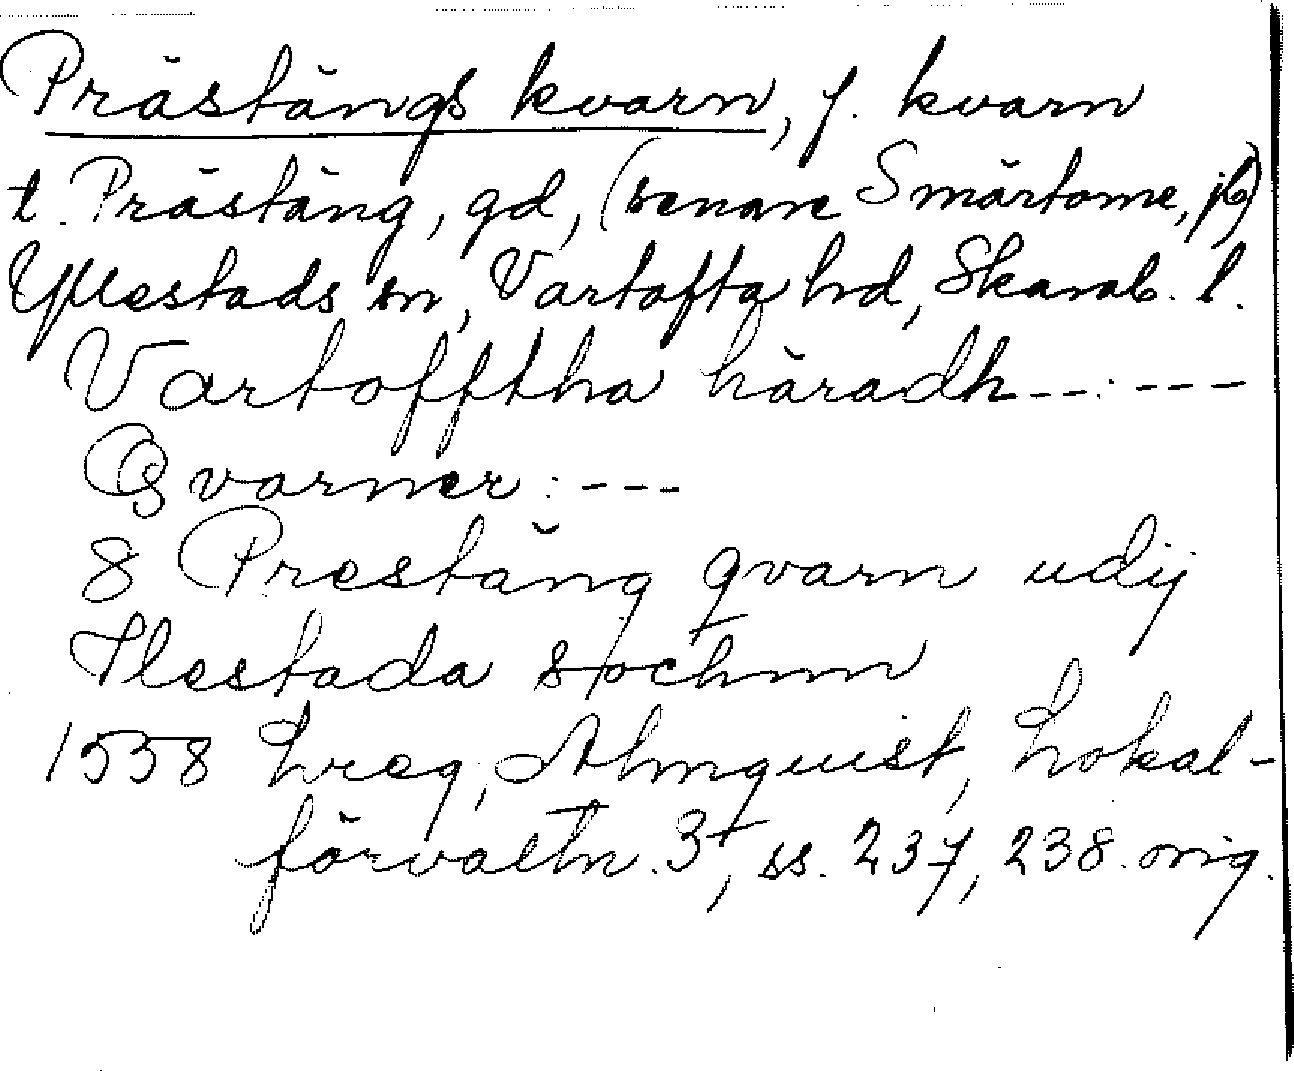 Prästängs kvarn, f. kvarn
t. Prästäng, gd, (senare Smärtome, jb)
Yllestads sn, Vartofta hd, Skarab. l.
Vartofftha häradh --:---
Qvarner: ---
8 Prestäng qvarn udij
Ilestada sochnn
1558 Lreg, Almquist, Lokal-
förvaltn. 3, ss. 237, 238. orig.